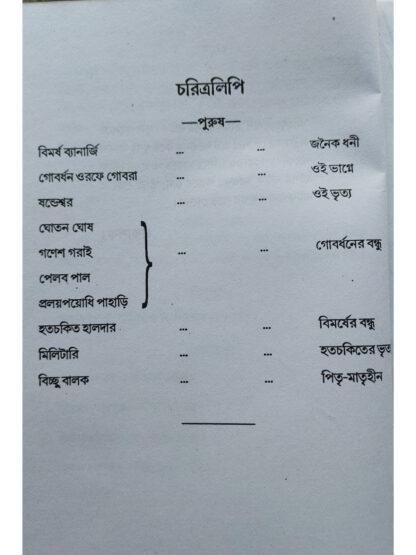 চরিত্রলিপি
—পুরুষ—
বিমর্ষ ব্যানার্জি ... ... জনৈক ধনী
গোবর্ধন ওরফে গোবরা ... ... ওই ভাগ্নে
ষন্ডেশ্বর ... ... ওই ভৃত্য
ঘোতন ঘোষ
গণেশ গরাই ... ... গোবর্ধনের বন্ধু
পেলব পাল
প্রলয়পয়োধি পাহাড়ি
হতচকিত হালদার ... ... বিমর্ষের বন্ধু
মিলিটারি ... ... হতচকিতের ভৃত
বিচ্ছু বালক ... ... পিতৃ-মাতৃহীন